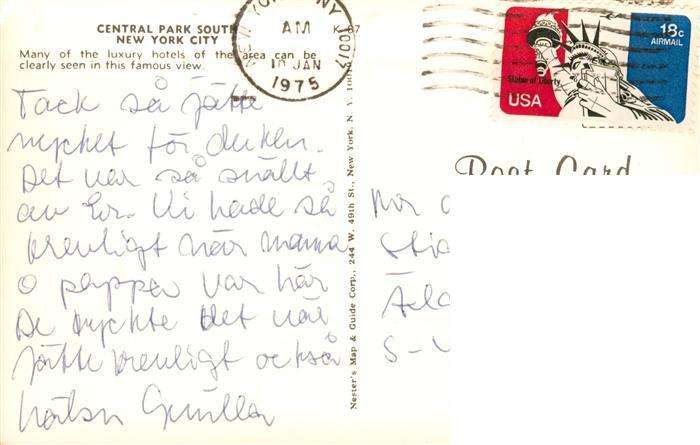 CENTRAL PARK SOUTH
NEW YORK CITY
K-
Many of the luxury hotels of the area can be
clearly seen in this famous view.
NEW YORK, NY
AM
10 JAN
1975
18c
AIRMAIL
Statue of Liberty
USA
Post Card
Nester's Map & Guide Corp., 244 W. 49th St., New York, N. Y.
Tack så jätte
mycket för duken.
Det var så snällt
av Er. Vi hade så
trevligt när mama
o pappa var här
De tyckte det var
jätte trevligt också
hälsn Gunilla
S-